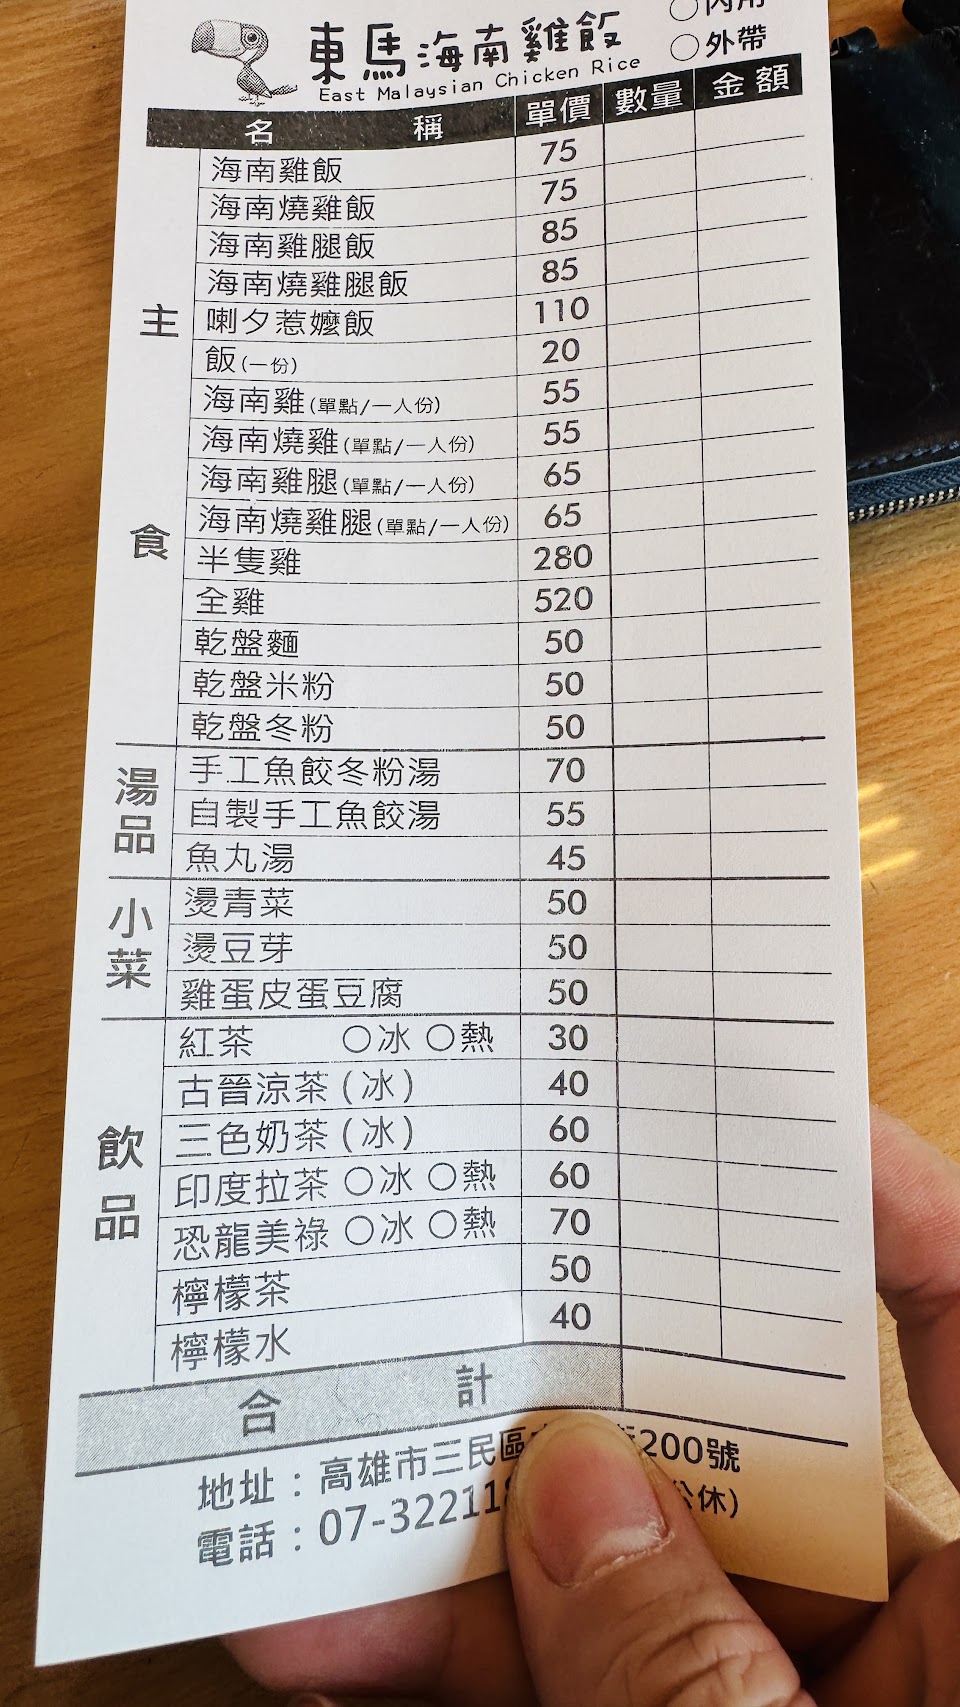 東馬海南雞飯
East Malaysian Chicken Rice
○內用
○外帶
名稱 單價 數量 金額
主食
海南雞飯 75
海南燒雞飯 75
海南雞腿飯 85
海南燒雞腿飯 85
喇夕惹嬤飯 110
飯(一份) 20
海南雞(單點/一人份) 55
海南燒雞(單點/一人份) 55
海南雞腿(單點/一人份) 65
海南燒雞腿(單點/一人份) 65
半隻雞 280
全雞 520
乾盤麵 50
乾盤米粉 50
乾盤冬粉 50
湯品
手工魚餃冬粉湯 70
自製手工魚餃湯 55
魚丸湯 45
小菜
燙青菜 50
燙豆芽 50
雞蛋皮蛋豆腐 50
飲品
紅茶 ○冰 ○熱 30
古晉涼茶(冰) 40
三色奶茶(冰) 60
印度拉茶 ○冰 ○熱 60
恐龍美祿 ○冰 ○熱 70
檸檬茶 50
檸檬水 40
合計
地址：高雄市三民區 200號
電話：07-32211 公休)